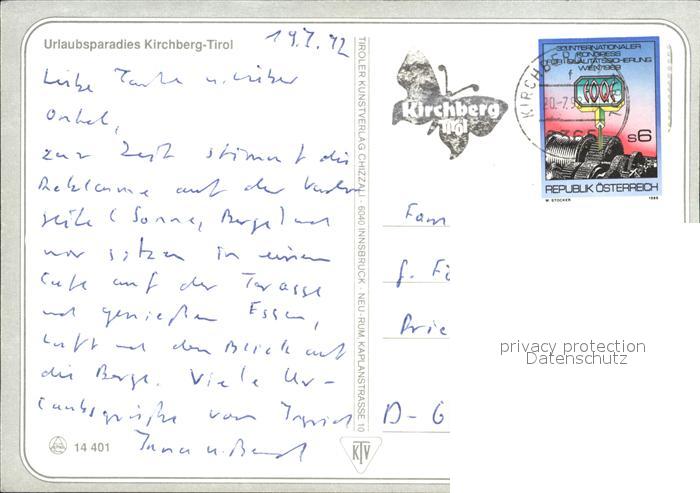 Urlaubsparadies Kirchberg-Tirol
19.7.92
Liebe Tante u. lieber
Onkel,
zur Zeit stimmt die
Reklame auf der Vorder
seite (Sonne, Berge) und
wir sitzen in einem
Cafe auf der Terasse
und genießen Essen,
Luft und den Blick auf
die Berge. Viele Ur-
laubsgrüße von
Jana u. Bernd
14 401
TIROLER KUNSTVERLAG CHIZZALI · 6040 INNSBRUCK - NEU-RUM, KAPLANSTRASSE 10
KTV
Kirchberg
Tirol
KIRCHBERG
20.-7.92
6365
33. INTERNATIONALER
KONGRESS
FÜR QUALITÄTSSICHERUNG
WIEN 1989
EOQC
S6
REPUBLIK ÖSTERREICH
W. STOCKER
1989
Fam
D-6
privacy protection
Datenschutz